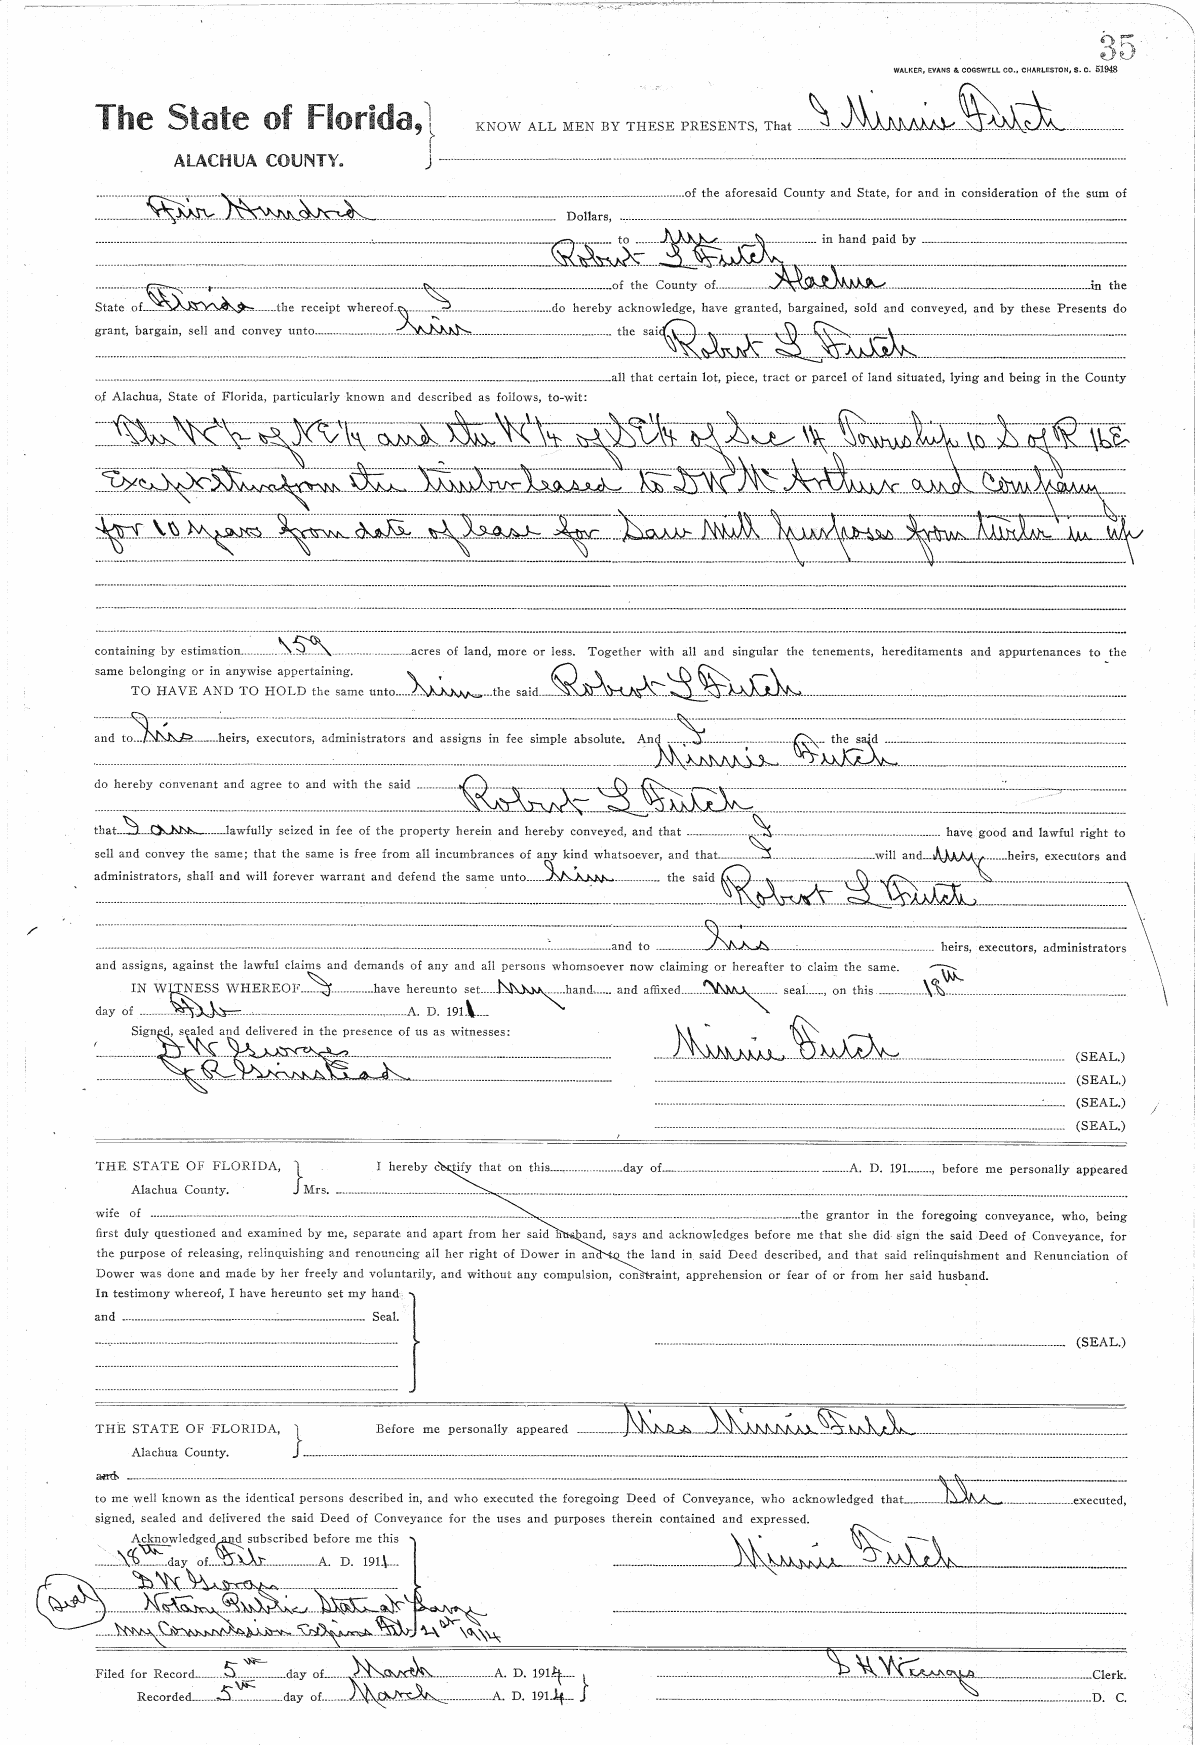 35
WALKER, EVANS & COGSWELL CO., CHARLESTON, S. C. 51948
The State of Florida,
KNOW ALL MEN BY THESE PRESENTS, That I Minnie Futch
ALACHUA COUNTY.
of the aforesaid County and State, for and in consideration of the sum of
Five Hundred Dollars,
to me in hand paid by
Robert L Futch
of the County of Alachua in the
State of Florida the receipt whereof I do hereby acknowledge, have granted, bargained, sold and conveyed, and by these Presents do
grant, bargain, sell and convey unto him the said Robert L Futch
all that certain lot, piece, tract or parcel of land situated, lying and being in the County
of Alachua, State of Florida, particularly known and described as follows, to-wit:
The W 1/2 of NE 1/4 and the W 1/4 of SE 1/4 of Sec 14 Township 10 S of R 16 E
Except therefrom the timber leased to D W McArthur and Company
for 10 years from date of lease for Saw Mill purposes from twelve in up
containing by estimation 159 acres of land, more or less. Together with all and singular the tenements, hereditaments and appurtenances to the
same belonging or in anywise appertaining.
TO HAVE AND TO HOLD the same unto him the said Robert L Futch
and to his heirs, executors, administrators and assigns in fee simple absolute. And I the said
Minnie Futch
do hereby convenant and agree to and with the said Robert L Futch
that I am lawfully seized in fee of the property herein and hereby conveyed, and that I have good and lawful right to
sell and convey the same; that the same is free from all incumbrances of any kind whatsoever, and that I will and my heirs, executors and
administrators, shall and will forever warrant and defend the same unto him the said Robert L Futch
and to his heirs, executors, administrators
and assigns, against the lawful claims and demands of any and all persons whomsoever now claiming or hereafter to claim the same.
IN WITNESS WHEREOF I have hereunto set my hand and affixed my seal, on this 18th
day of Feb A. D. 1911
Signed, sealed and delivered in the presence of us as witnesses:
D W Georges
Minnie Futch (SEAL.)
J R Grinstead
(SEAL.)
(SEAL.)
(SEAL.)
THE STATE OF FLORIDA, I hereby certify that on this day of A. D. 191 , before me personally appeared
Alachua County. Mrs.
wife of the grantor in the foregoing conveyance, who, being
first duly questioned and examined by me, separate and apart from her said husband, says and acknowledges before me that she did sign the said Deed of Conveyance, for
the purpose of releasing, relinquishing and renouncing all her right of Dower in and to the land in said Deed described, and that said relinquishment and Renunciation of
Dower was done and made by her freely and voluntarily, and without any compulsion, constraint, apprehension or fear of or from her said husband.
In testimony whereof, I have hereunto set my hand
and Seal.
(SEAL.)
THE STATE OF FLORIDA, Before me personally appeared Miss Minnie Futch
Alachua County.
and
to me well known as the identical persons described in, and who executed the foregoing Deed of Conveyance, who acknowledged that She executed,
signed, sealed and delivered the said Deed of Conveyance for the uses and purposes therein contained and expressed.
Acknowledged and subscribed before me this
18th day of Feb A. D. 1911
Minnie Futch
D W Georges
Seal Notary Public State at Large
My Commission Expires Feb 21st 1914
Filed for Record 5th day of March A. D. 1914
S H Wienges Clerk.
Recorded 5th day of March A. D. 1914
D. C.